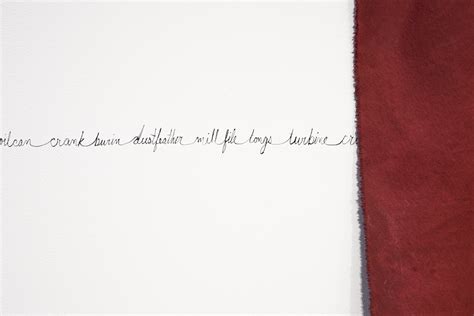 oilcan crank burin dustfeather mill file tongs turbine cr